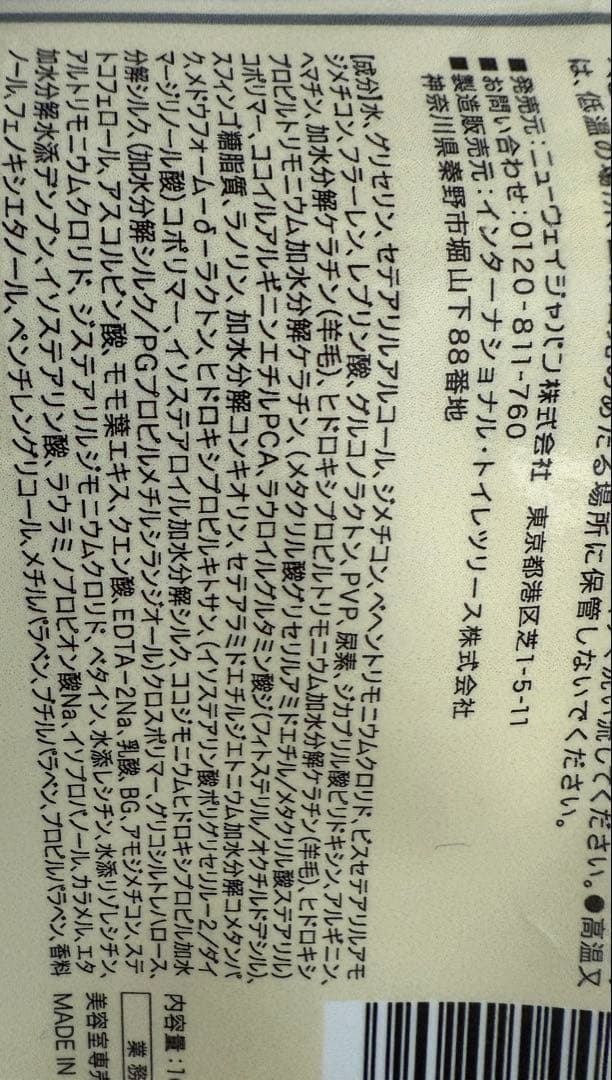 は、低温の場
のあたる場所に保管しないでください。
洗い流してください。●高温又
■発売元:ニューウェイジャパン株式会社 東京都港区芝1-5-11
■お問い合わせ:0120-811-760
■製造販売元:インターナショナル・トイレツリース株式会社
神奈川県秦野市堀山下88番地
【成分】水、グリセリン、セテアリルアルコール、ジメチコン、ベヘントリモニウムクロリド、ビスセテアリルアモ
ジメチコン、フラーレン、レブリン酸、グルコノラクトン、PVP、尿素、ジカプリル酸ピリドキシン、アルギニン、
ヘマチン、加水分解ケラチン(羊毛)、ヒドロキシプロピルトリモニウム加水分解ケラチン(羊毛)、ヒドロキシ
プロピルトリモニウム加水分解ケラチン、(メタクリル酸グリセリルアミドエチル/メタクリル酸ステアリル)
コポリマー、ココイルアルギニンエチルPCA、ラウロイルグルタミン酸ジ(フィトステリル/オクチルドデシル)、
スフィンゴ糖脂質、ラノリン、加水分解コンキオリン、セテアラミドエチルジエトニウム加水分解コメタンパ
ク、メドウフォーム-δ-ラクトン、ヒドロキシプロピルキトサン、(イソステアリン酸ポリグリセリル-2/ダイ
マージリノール酸)コポリマー、イソステアロイル加水分解シルク、ココジモニウムヒドロキシプロピル加水
分解シルク、(加水分解シルク/PGプロピルメチルシランジオール)クロスポリマー、グリコシルトレハロース、
トコフェロール、アスコルビン酸、モモ葉エキス、クエン酸、EDTA-2Na、乳酸、BG、アモジメチコン、ステ
アルトリモニウムクロリド、ジステアリルジモニウムクロリド、ベタイン、水添レシチン、水添リゾレシチン、
加水分解水添デンプン、イソステアリン酸、ラウラミノプロピオン酸Na、イソプロパノール、カラメル、エタ
ノール、フェノキシエタノール、ペンチレングリコール、メチルパラベン、ブチルパラベン、プロピルパラベン、香料
内容量:1
業務
美容室専売
MADE IN